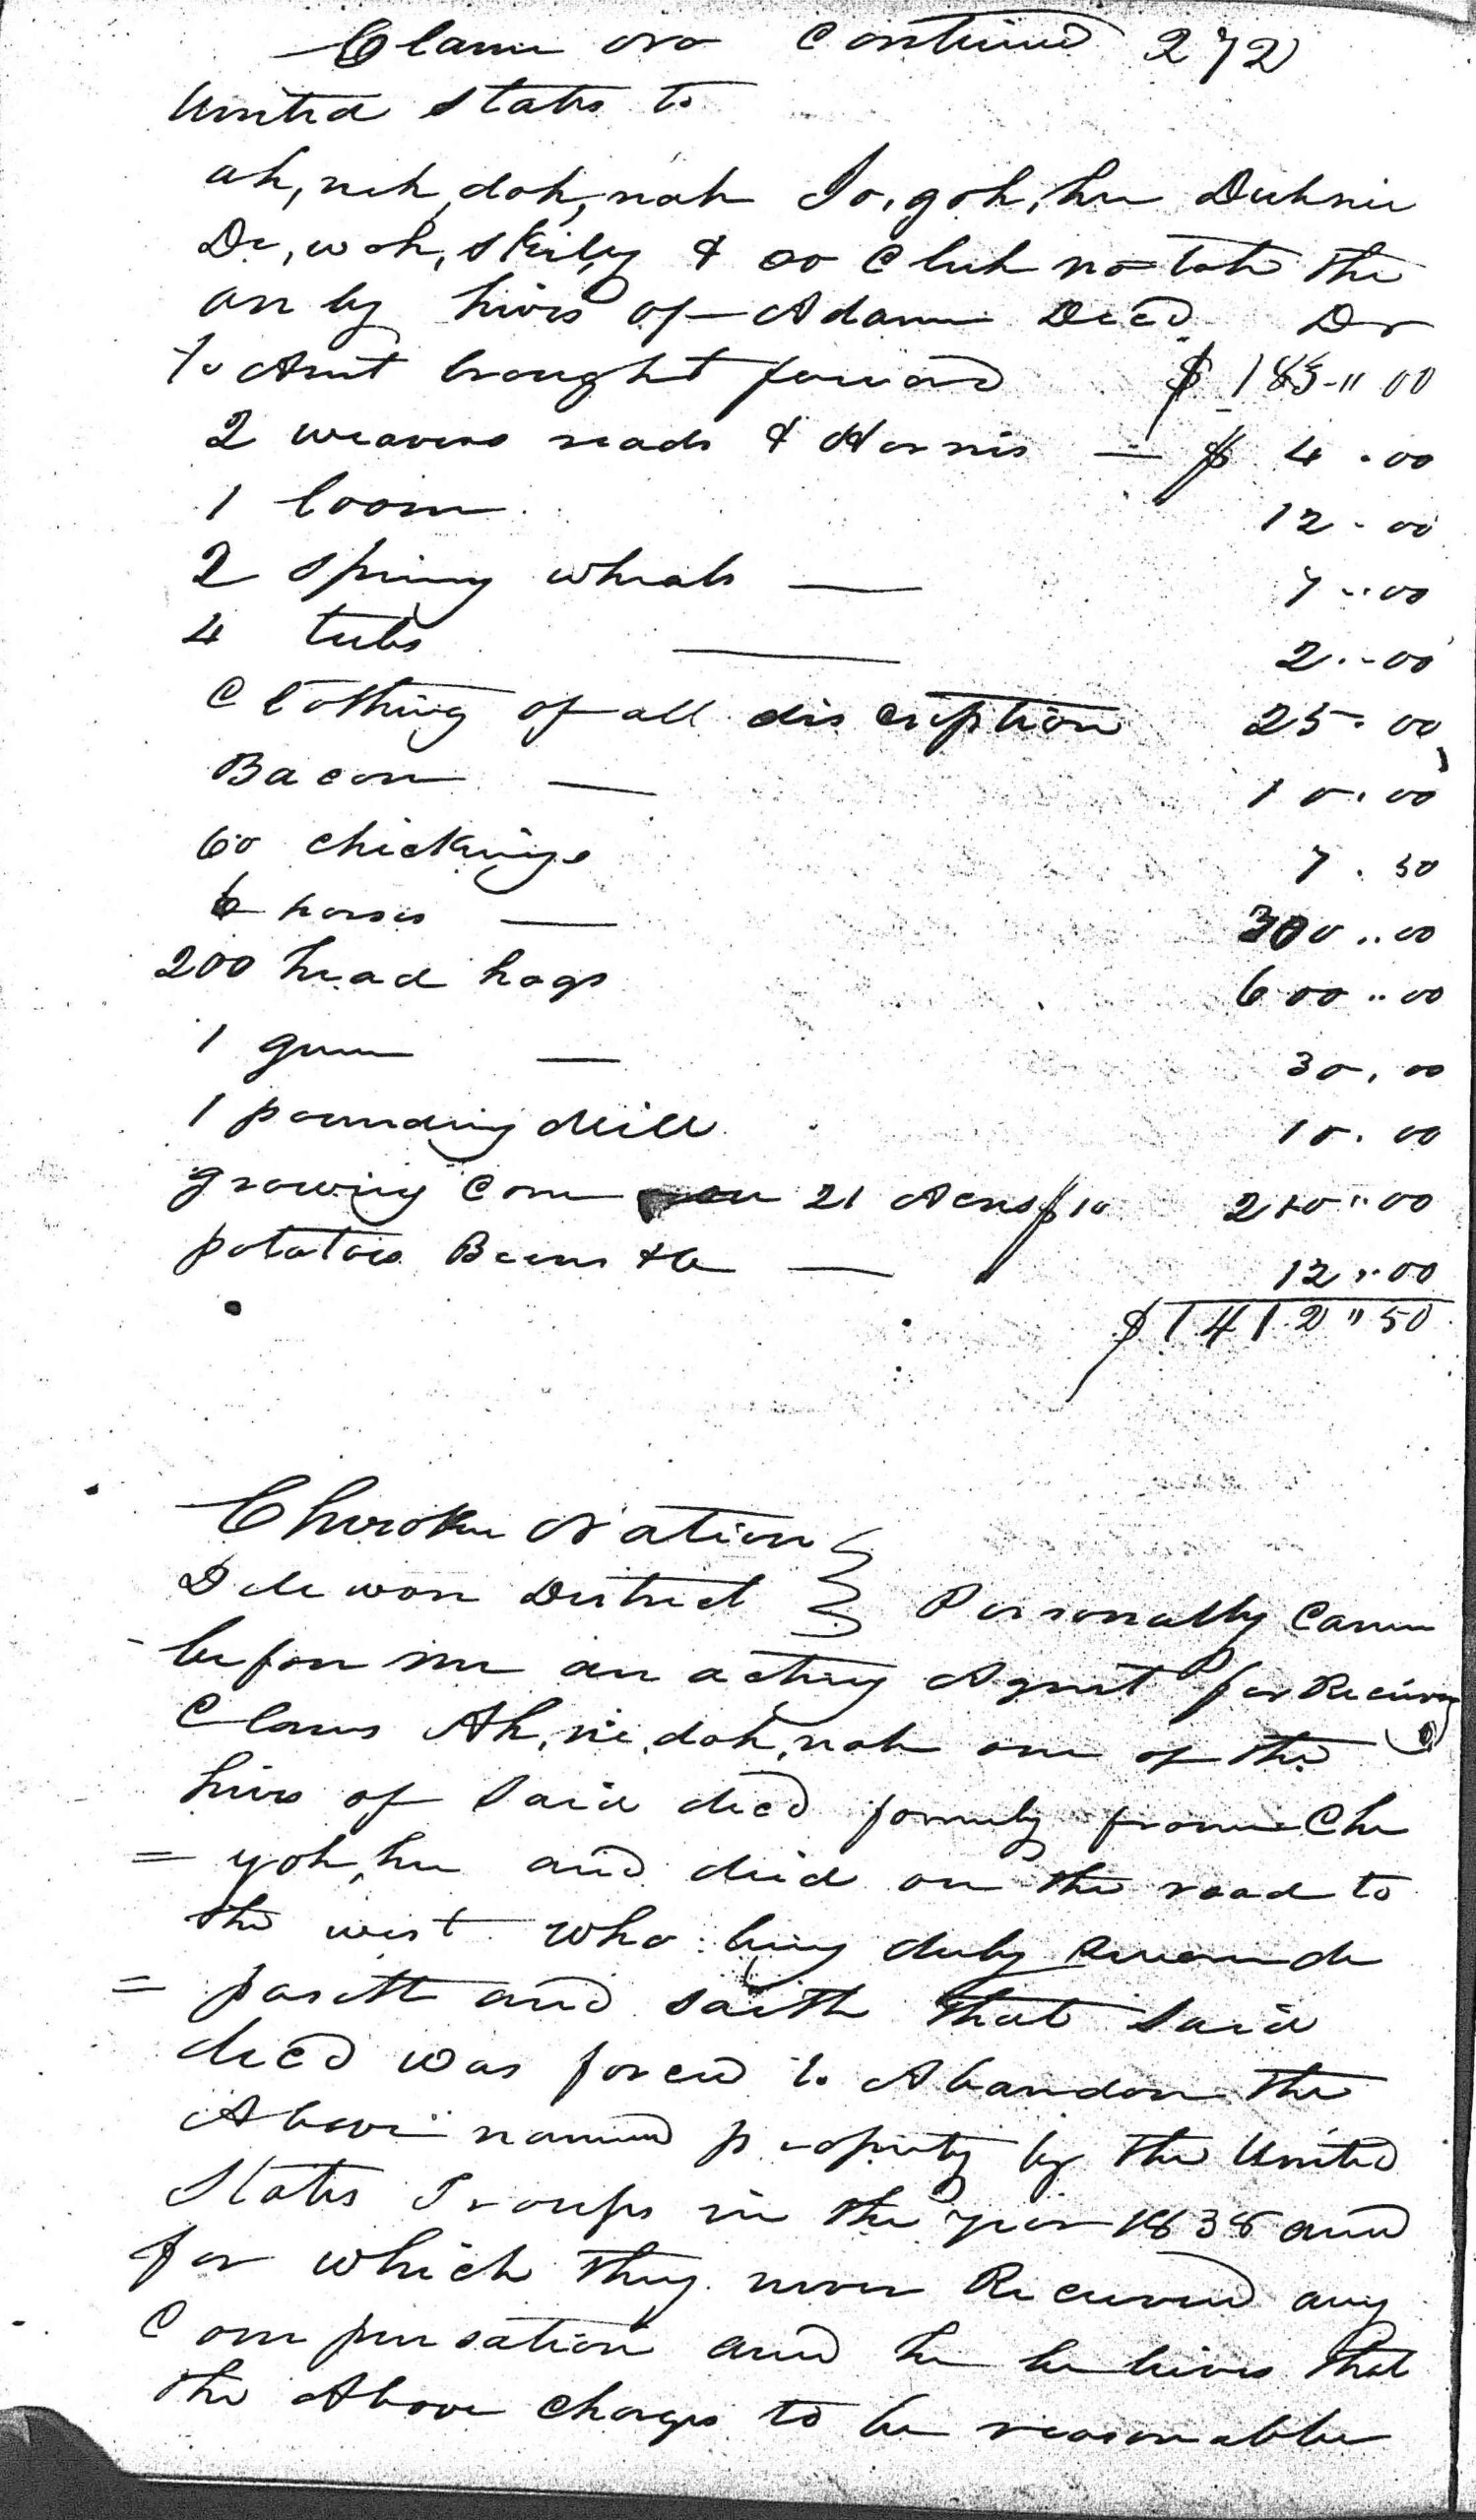 Claim No Continued 272
United States to
ah, nih, doh, nah Jo, goh, hee Duhnie
De, woh, skiley & oo Cluh no tah the
only hiers of Adam Decd Dr
To Amt brought forward $ 183 " 00
2 weavers reads & Harnis — $ 4 . 00
1 loom 12 . 00
2 spining wheals — 7 .. 00
4 tubs — 2 .. 00
Clothing of all discription 25 . 00
Bacon — 10 . 00
60 chickings 7 . 50
6 horses — 300 .. 00
200 head hogs 600 .. 00
1 gun — 30 . 00
1 pounding Mill 10 . 00
growing Corn 21 Acres $10 210 .. 00
potatoes Beens &c — 12 .. 00
$ 1412 " 50
Cherokee Nation
Delewon District } Personally Came
before me an acting Agent for Receiving
Claims Ah, ni, doh, nah one of the
hiers of Said decd formely from Che
= yoh, hee and died on the road to
the west who being duly de
= poseth and saith that Said
decd was forced to Abandon the
Above named property by the United
States Troups in the year 1838 and
for which they never Received any
Compensation and he believes that
the Above charges to be reasonable